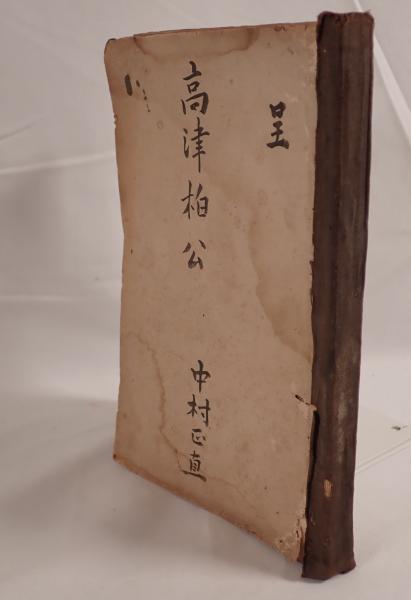 呈
高津柏公
中村正直